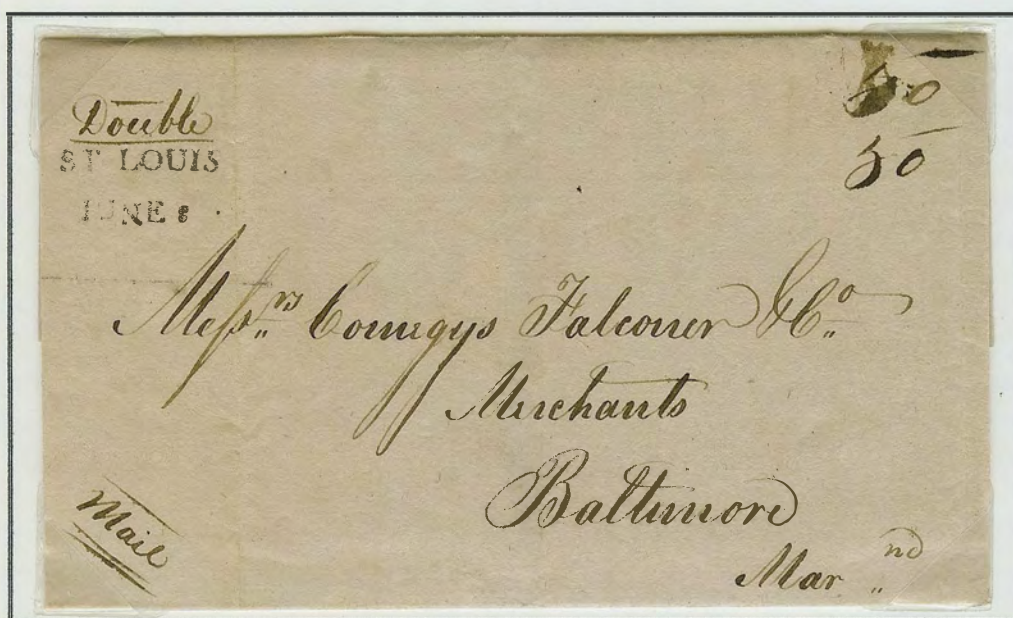 Double
ST LOUIS
JUNE 8
50
50
Messrs Comegys Falconer & Co
Merchants
Baltimore
Mar nd
Mail